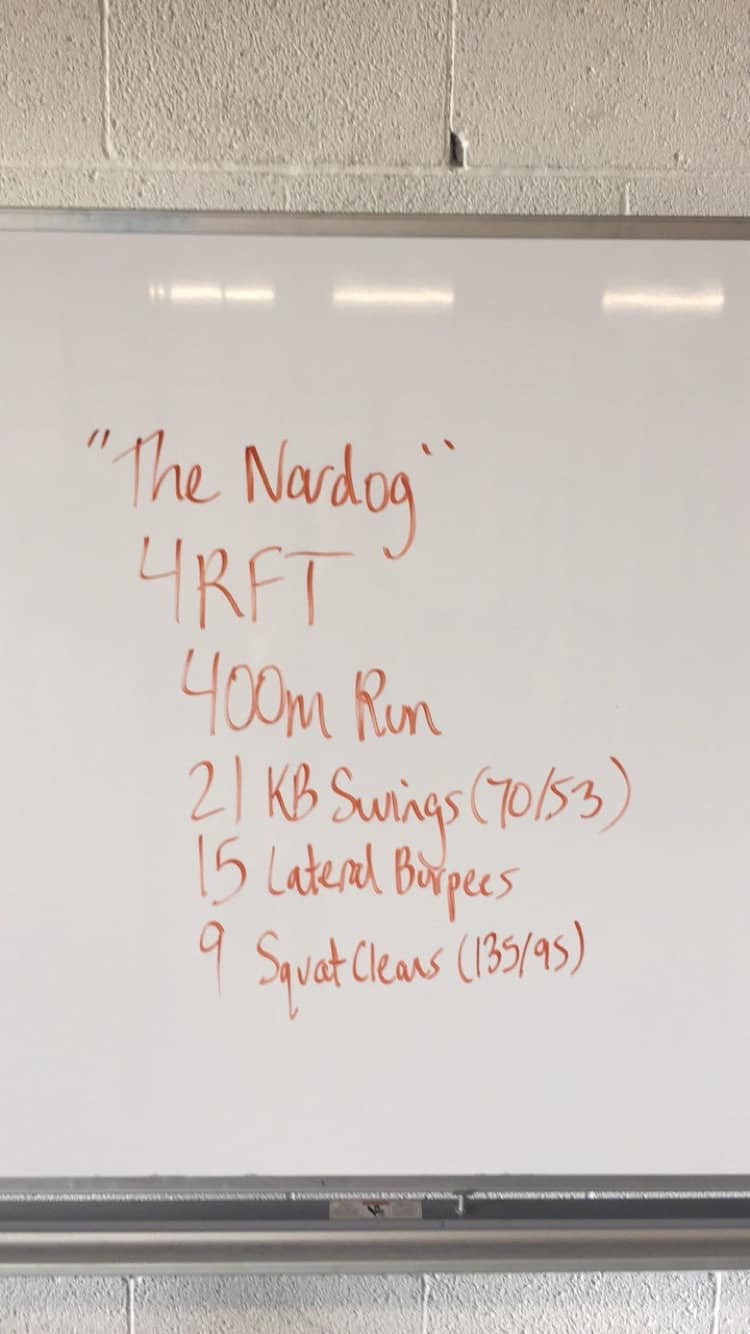 "The Nardog"
4RFT
400m Run
21 KB Swings (70/53)
15 Lateral Burpees
9 Squat Cleans (135/95)